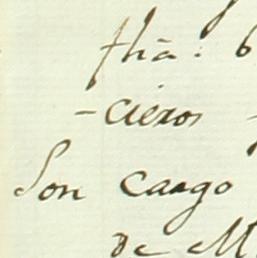 fha: 6
-cieros
Son cargo
de M